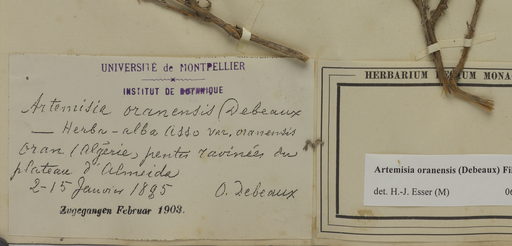 UNIVERSITÉ de MONTPELLIER
INSTITUT DE BOTANIQUE
Artemisia oranensis (Debeaux
— Herba-alba Asso var. oranensis
Oran (Algérie, pentes ravinées du
plateau d'Almeida
2-15 Janvier 1895 O. Debeaux
Zugegangen Februar 1903.
HERBARIUM REGUM MONAC
Artemisia oranensis (Debeaux) Fil
det. H.-J. Esser (M) 06